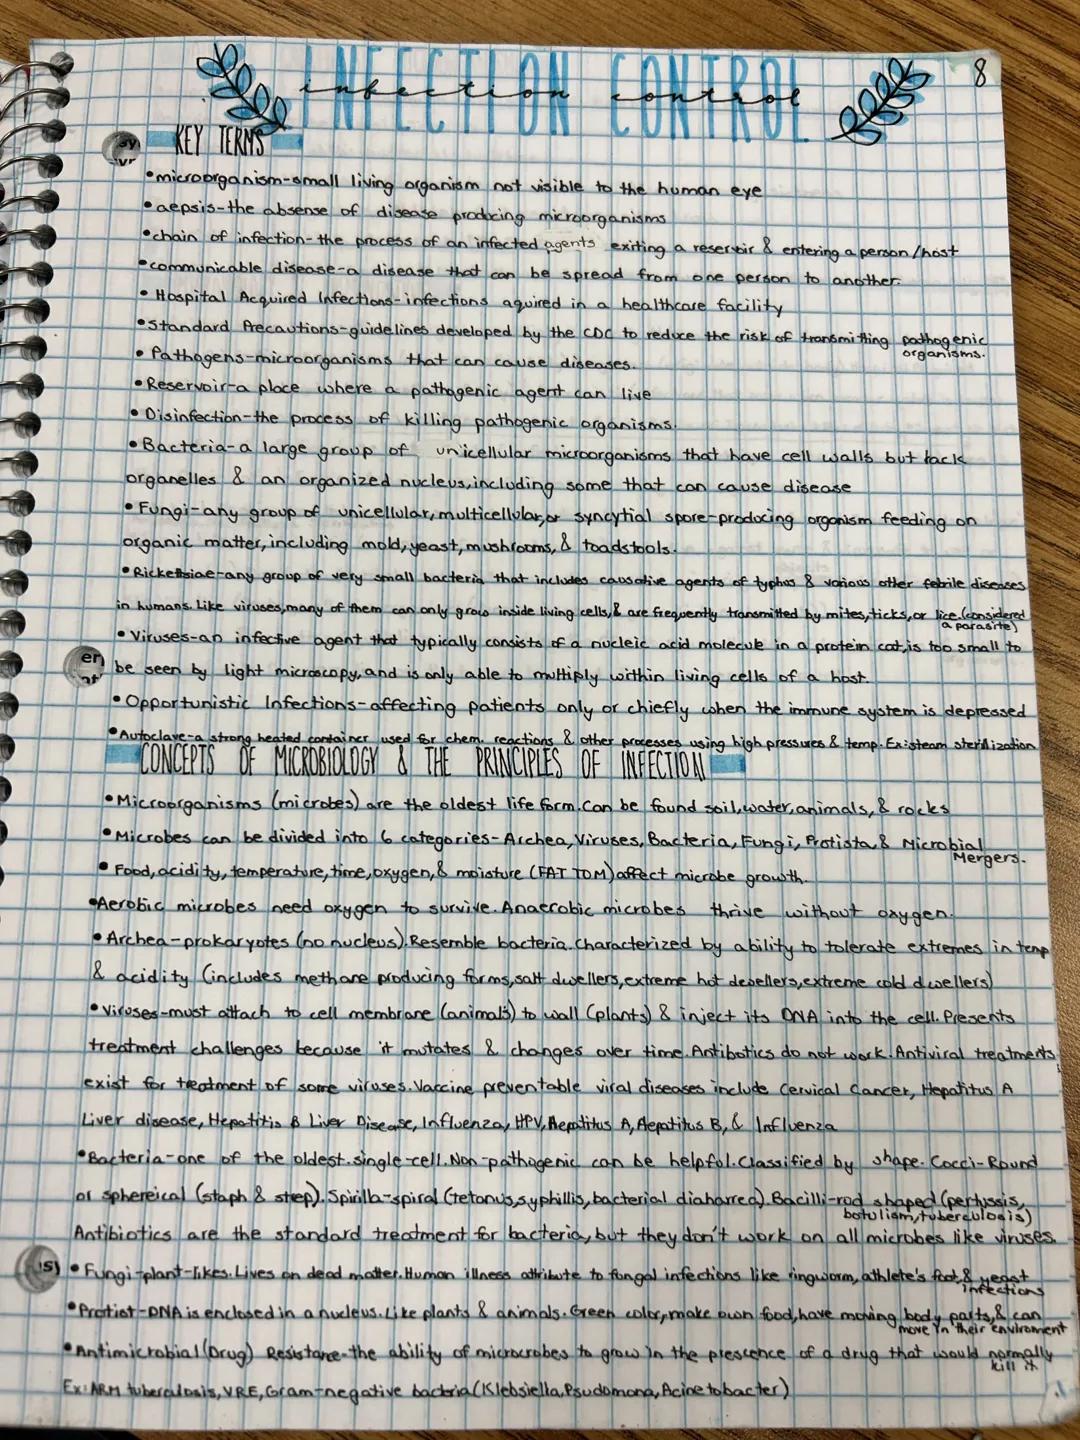 INFECTION CONTROL
infection control
8
KEY TERMS
•microorganism-small living organism not visible to the human eye
•aepsis-the absense of disease producing microorganisms
•chain of infection-the process of an infected agents exiting a reservoir & entering a person/host
•communicable disease-a disease that can be spread from one person to another.
•Hospital Acquired Infections-infections aquired in a healthcare facility
•Standard Precautions-guidelines developed by the CDC to reduce the risk of transmitting pathogenic
organisms.
•Pathogens-microorganisms that can cause diseases.
•Reservoir-a place where a pathogenic agent can live
•Disinfection-the process of killing pathogenic organisms.
•Bacteria-a large group of unicellular microorganisms that have cell walls but lack
organelles & an organized nucleus,including some that can cause disease
•Fungi-any group of unicellular,multicellular,or syncytial spore-producing organism feeding on
organic matter,including mold,yeast,mushrooms,& toadstools.
•Rickettsiae-any group of very small bacteria that includes causative agents of typhus & various other febrile diseases
in humans. Like viruses,many of them can only grow inside living cells,& are frequently transmitted by mites,ticks,or lice.(considered
a parasite)
•Viruses-an infective agent that typically consists of a nucleic acid molecule in a protein coat,is too small to
be seen by light microscopy,and is only able to multiply within living cells of a host.
•Opportunistic Infections-affecting patients only or chiefly when the immune system is depressed
•Autoclave-a strong heated container used for chem. reactions & other processes using high pressures & temp. Ex:steam sterilization
CONCEPTS OF MICROBIOLOGY & THE PRINCIPLES OF INFECTION
•Microorganisms (microbes) are the oldest life form.Can be found soil,water,animals,& rocks
•Microbes can be divided into 6 categories-Archea,Viruses,Bacteria,Fungi,Protista,& Microbial
Mergers.
•Food,acidity,temperature,time,oxygen,& moisture (FAT TOM) affect microbe growth.
•Aerobic microbes need oxygen to survive.Anaerobic microbes thrive without oxygen.
•Archea-prokaryotes (no nucleus).Resemble bacteria.Characterized by ability to tolerate extremes in temp
& acidity (includes methane producing forms,salt dwellers,extreme hot dewellers,extreme cold dwellers)
•Viruses-must attach to cell membrane (animals) to wall (plants) & inject its DNA into the cell.Presents
treatment challenges because it mutates & changes over time.Antibotics do not work.Antiviral treatments
exist for treatment of some viruses.Vaccine preventable viral diseases include Cervical Cancer, Hepatitus A
Liver disease,Hepatitis B Liver Disease,Influenza,HPV,Hepatitus A,Hepatitus B,& Influenza
•Bacteria-one of the oldest.single-cell.Non-pathogenic can be helpful.Classified by shape.Cocci-Round
or sphereical (staph & step).Spirilla-spiral (tetanus,syphillis,bacterial diaharrea).Bacilli-rod shaped (pertussis,
botulism,tuberculosis)
Antibiotics are the standard treatment for bacteria,but they don't work on all microbes like viruses.
•Fungi-plant-likes.Lives on dead matter.Human illness attribute to fungal infections like ringworm,athlete's foot,& yeast
infections
•Protist-DNA is enclosed in a nucleus.Like plants & animals.Green color,make own food,have moving body parts,& can
move in their enviroment
•Antimicrobial (Drug) Resistance-the ability of microcrobes to grow in the prescence of a drug that would normally
kill it
Ex:ARM tuberculosis,VRE,Gram-negative bacteria (Klebsiella,Psudomona,Acinetobacter)